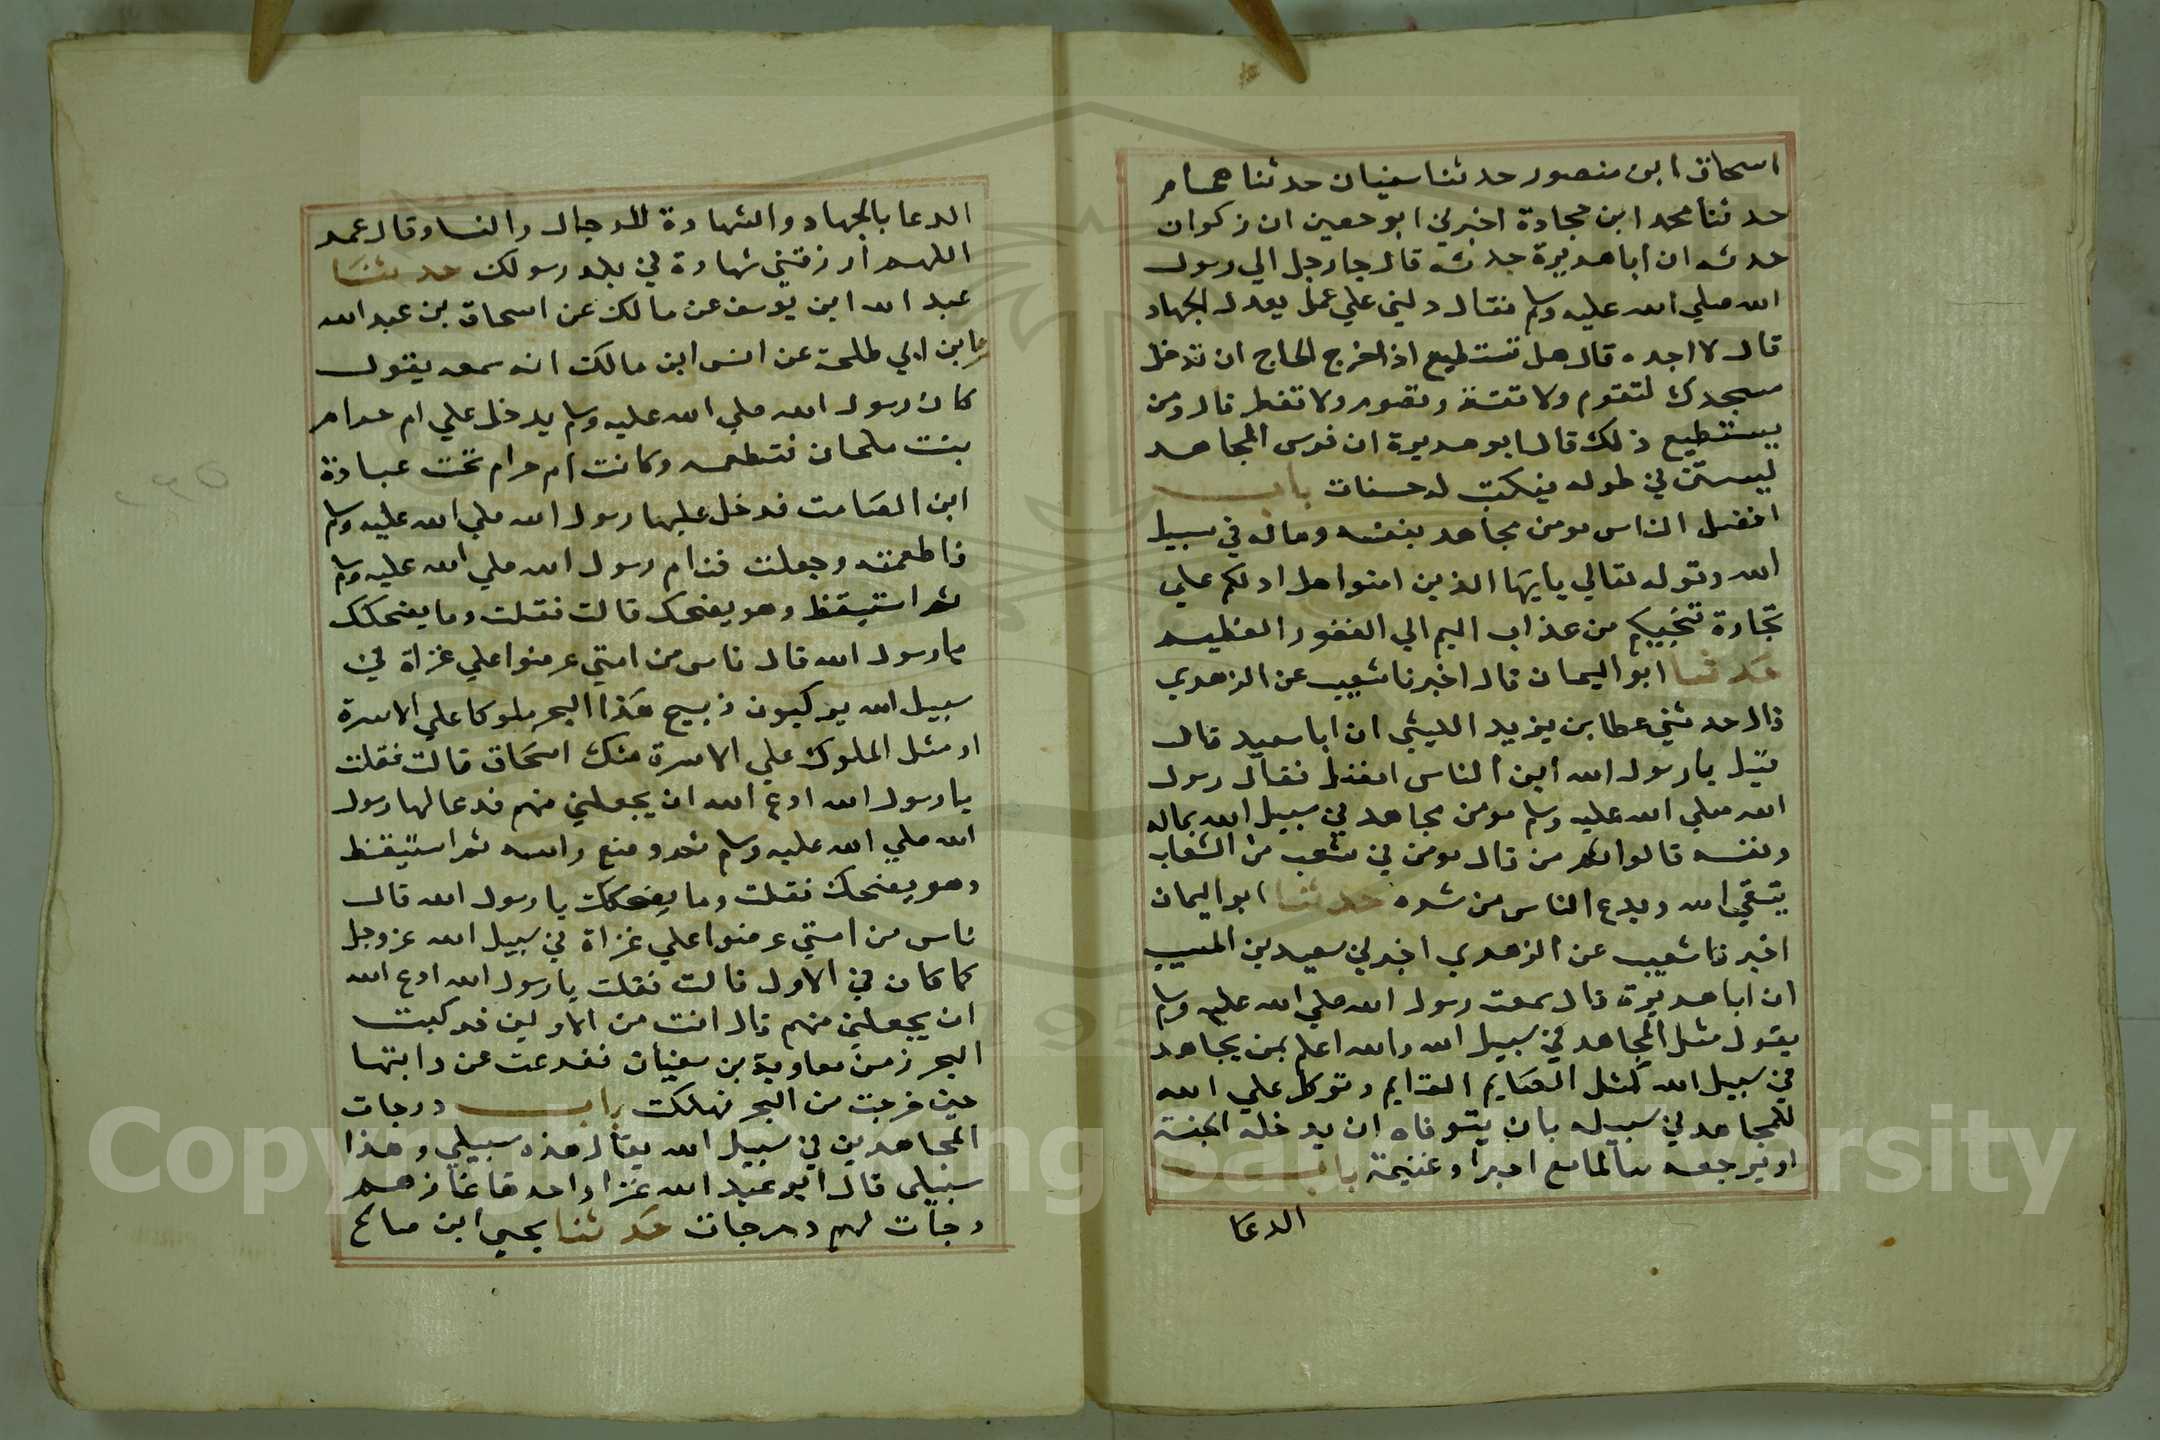 اسحاق ابن منصور حدثنا سفيان حدثنا همام
حدثنا محمد ابن جحادة اخبرني ابو حصين ان ذكوان
حدثه ان اباهريرة حدثه قال جا رجل الي رسول
الله صلي الله عليه وسلم فقال دلني علي عمل يعدل الجهاد
قال لا اجده قال هل تستطيع اذا خرج الحاج ان تدخل
مسجدك لتقوم ولا تفتر وتصوم ولا تفطر قال ومن
يستطيع ذلك قال ابو هريرة ان فرس المجاهد
ليستن في طوله فيكتب له حسنات باب
افضل الناس مومن مجاهد بنفسه وماله في سبيل
الله وقوله تعالي يايها الذين امنوا هل ادلكم علي
تجارة تنجيكم من عذاب اليم الي الفوز العظيم
حدثنا ابو اليمان قال اخبرنا شعيب عن الزهري
قال حدثني عطا بن يزيد الليثي ان ابا سعيد قال
قيل يا رسول الله اين الناس افضل فقال رسول
الله صلي الله عليه وسلم مومن مجاهد في سبيل الله بماله
ونفسه قالوا ثم من قال مومن في شعب من الشعاب
يتقي الله ويدع الناس من شره حدثنا ابو اليمان
اخبرنا شعيب عن الزهري اخبرني سعيد بن المسيب
ان اباهريرة قال سمعت رسول الله صلي الله عليه وسلم
يقول مثل المجاهد في سبيل الله والله اعلم بمن يجاهد
في سبيل الله كمثل الصايم القايم وتوكل علي الله
للمجاهد في سبيله بان يتوفاه ان يدخله الجنة
او يرجعه سالما مع اجر او غنيمة باب
الدعا
الدعا بالجهاد والشهادة للرجال والنسا وقال عمر
اللهم ارزقني شهادة في بلد رسولك حدثنا
عبد الله ابن يوسف عن مالك عن اسحاق بن عبد الله
ابن ابي طلحة عن انس ابن مالك انه سمعه يقول
كان رسول الله صلي الله عليه وسلم يدخل علي ام حرام
بنت ملحان فتطعمه وكانت ام حرام تحت عبادة
ابن الصامت فدخل عليها رسول الله صلي الله عليه وسلم
فاطعمته وجعلت فنام رسول الله صلي الله عليه وسلم
ثم استيقظ وهو يضحك قالت فقلت وما يضحكك
يا رسول الله قال ناس من امتي عرضوا علي غزاة في
سبيل الله يركبون ثبج هذا البحر ملوكا علي الاسرة
او مثل الملوك علي الاسرة شك اسحاق قالت فقلت
يا رسول الله ادع الله ان يجعلني منهم فدعا لها رسول
الله صلي الله عليه وسلم ثم وضع راسه ثم استيقظ
وهو يضحك فقلت وما يضحكك يا رسول الله قال
ناس من امتي عرضوا علي غزاة في سبيل الله عز وجل
كما كان في الاول قالت فقلت يا رسول الله ادع الله
ان يجعلني منهم قال انت من الاولين فركبت
البحر زمن معاوية بن سفيان فصرعت عن دابتها
حين خرجت من البحر فهلكت باب درجات
المجاهدين في سبيل الله يقال هذه سبيلي وهذا
سبيلي قال ابو عبد الله غزا واحدها غاز هم
درجات لهم درجات حدثنا يحيي ابن صالح
٢٩٥
Copyright © King Saud University
1957